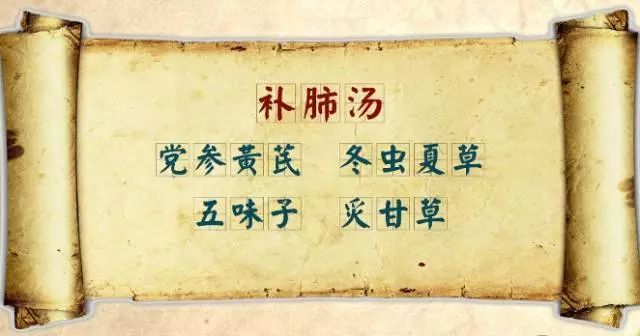 补肺汤
党参黄芪 冬虫夏草
五味子 炙甘草